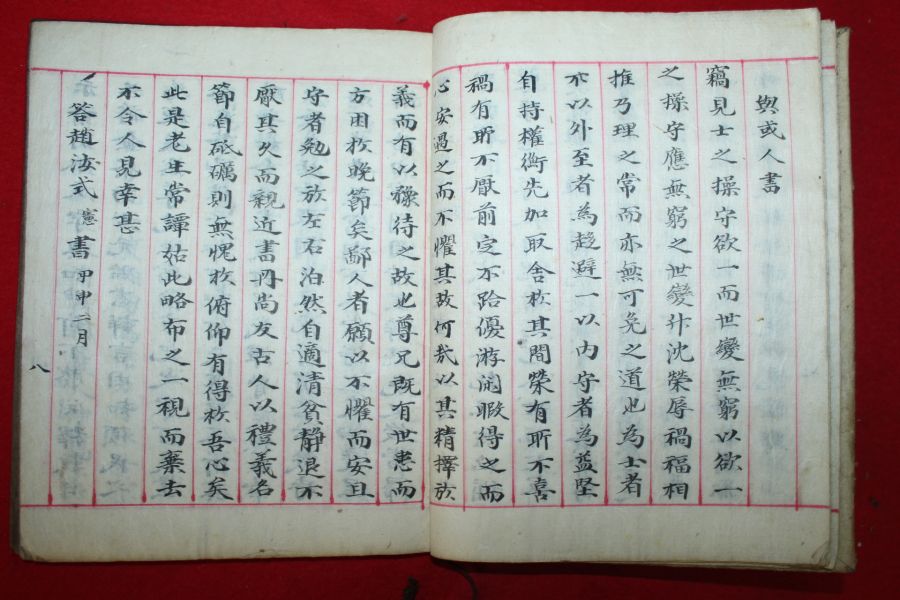 與或人書
竊見士之操守欲一而世變無窮以欲一
之操守應無窮之世變升沈榮辱禍福相
推乃理之常而亦無可免之道也為士者
不以外至者為趍避一以內守者為益堅
自持權衡先加取舍於其間榮有所不喜
禍有所不厭前定不跲優游閒暇得之而
心安遇之而不懼其故何哉以其精擇於
義而有以豫待之故也尊兄既有世患而
方困於晚節矣鄙人者願以不懼而安且
守者勉之於左右泊然自適清貧靜退不
厭其久而親近書冊尚友古人以禮義名
節自砥礪則無愧於俯仰有得於吾心矣
此是老生常譚姑此略布之一視而棄去
不令人見幸甚
答趙汝式憲書甲申二月
八